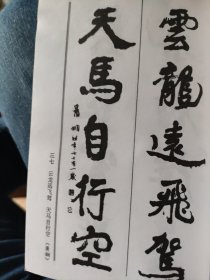 雲龍遠飛駕
天馬自行空
三七 云龙远飞驾 天马自行空(萧娴)